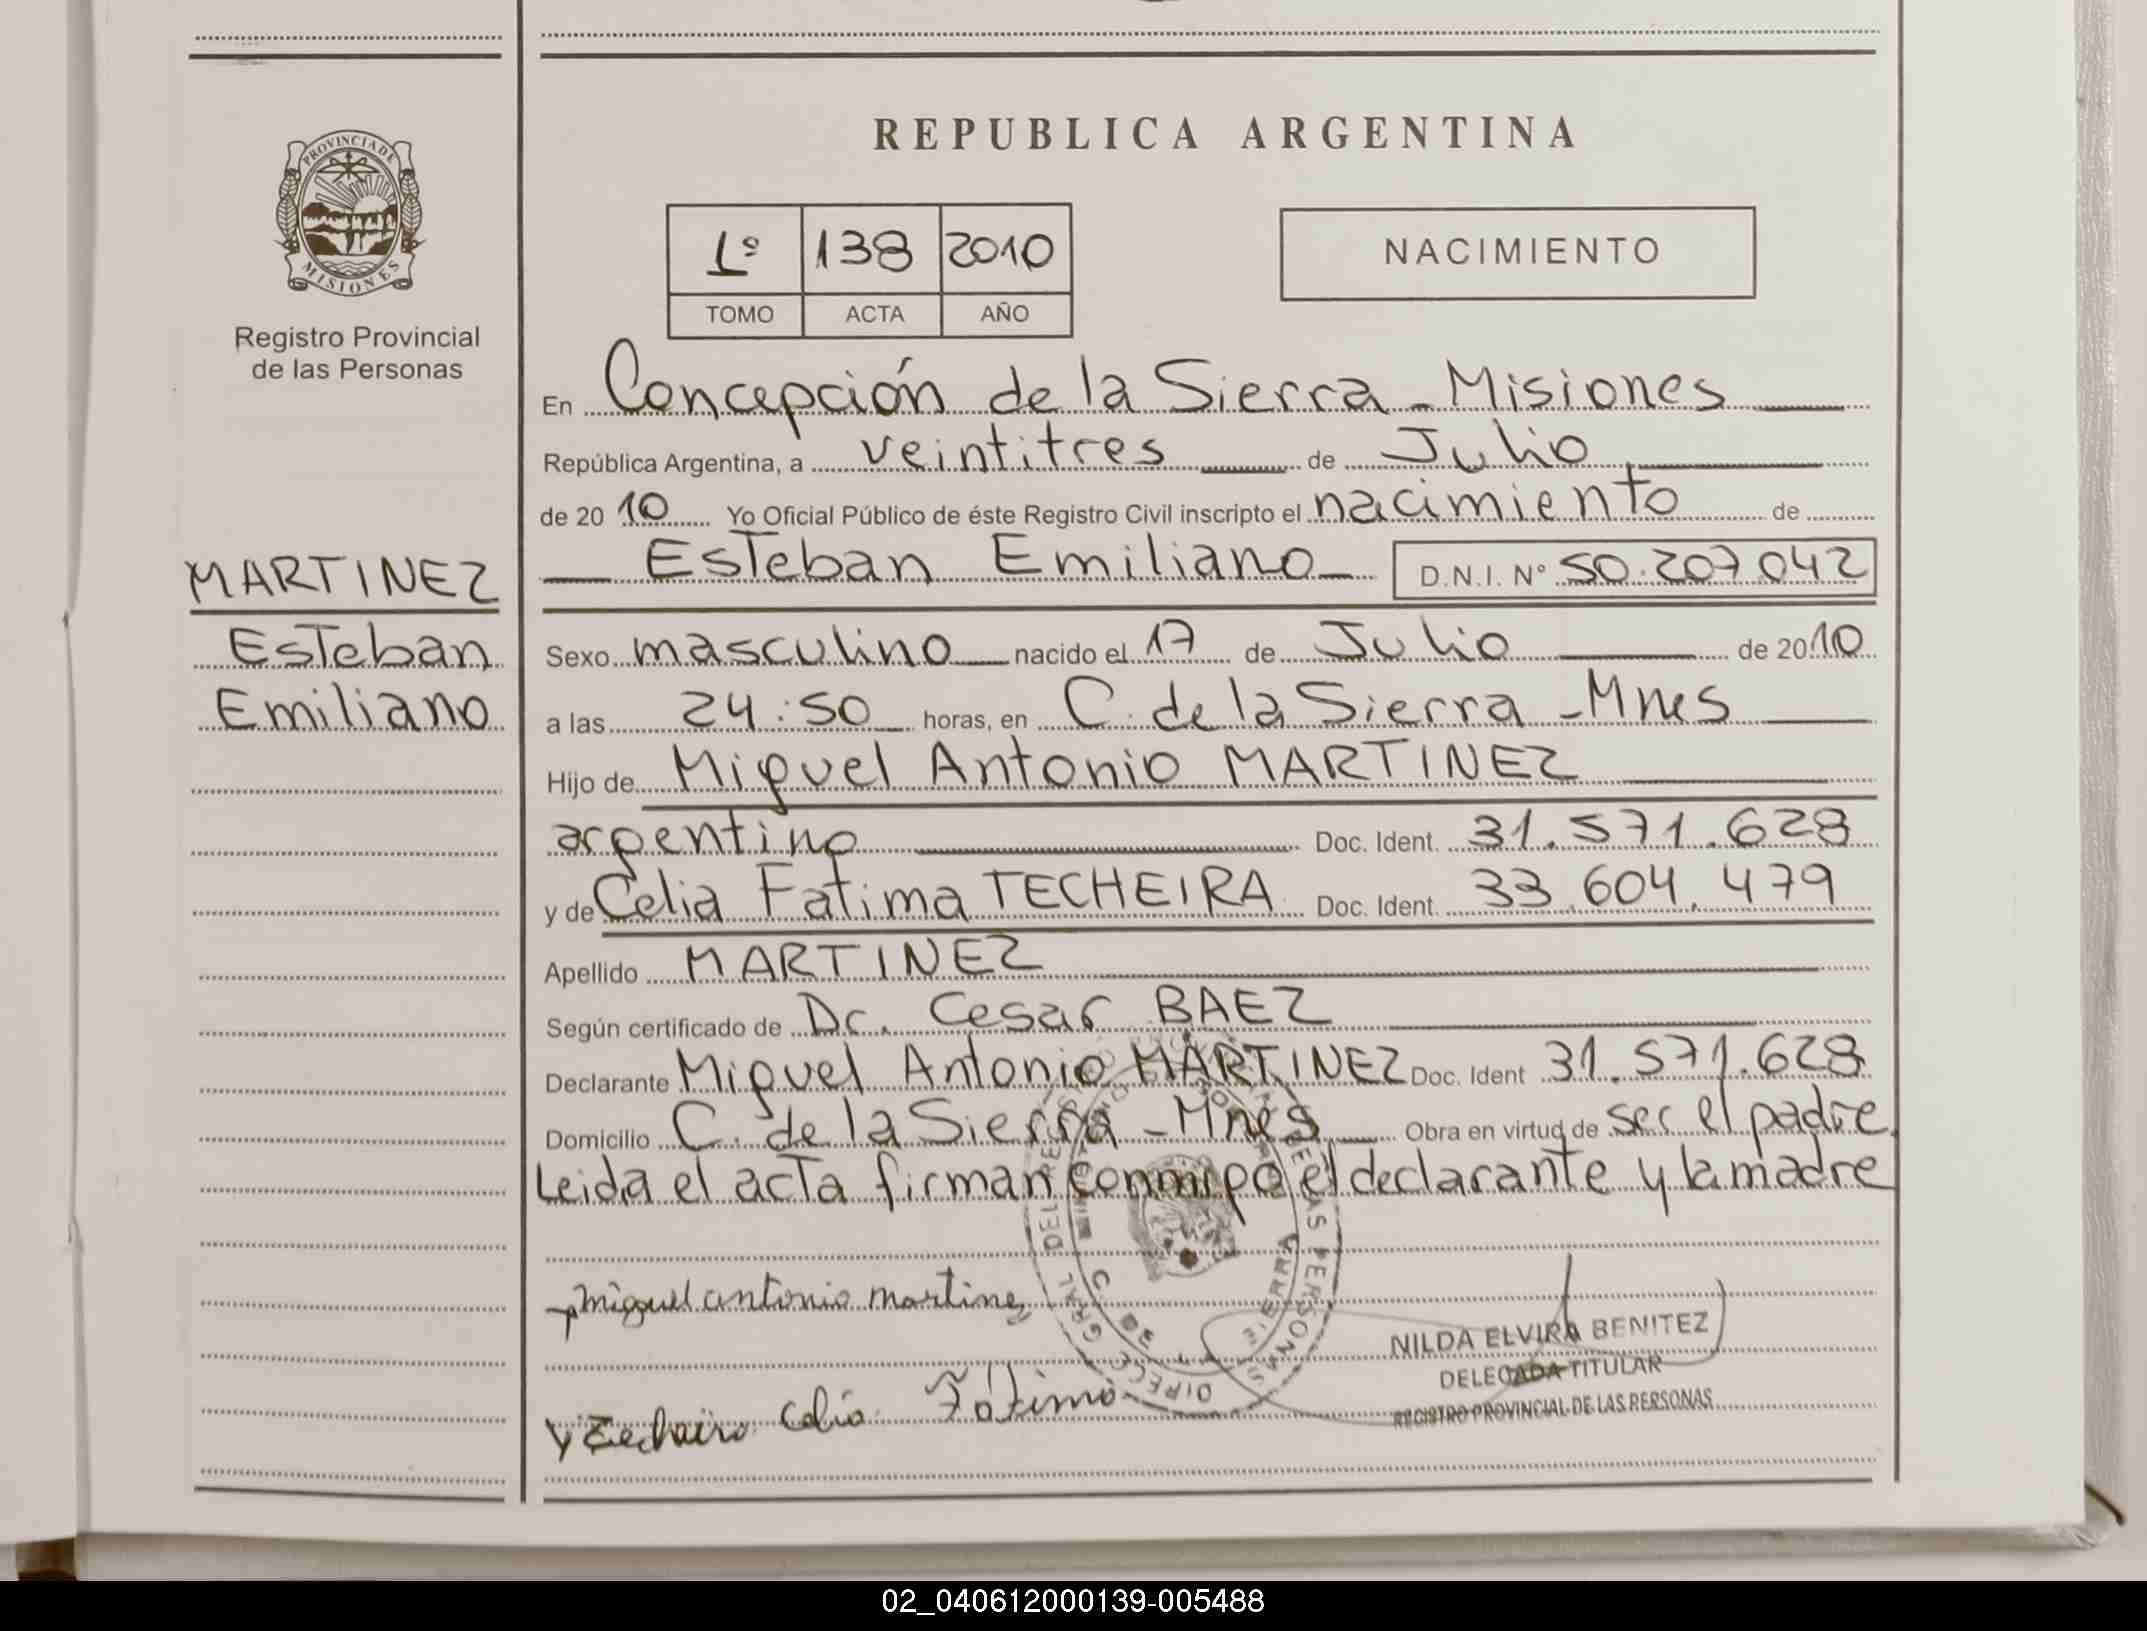 PROVINCIA DE
MISIONES
Registro Provincial
de las Personas
MARTINEZ
Esteban
Emiliano
REPUBLICA ARGENTINA
1º 138 2010
TOMO ACTA AÑO
NACIMIENTO
En Concepción de la Sierra - Misiones
República Argentina, a veintitres de Julio
de 2010 Yo Oficial Público de éste Registro Civil inscripto el nacimiento de
Esteban Emiliano D.N.I. Nº 50.207.042
Sexo masculino nacido el 17 de Julio de 2010
a las 24:50 horas, en C. de la Sierra - Mnes
Hijo de Miguel Antonio MARTINEZ
argentino Doc. Ident. 31.571.628
y de Celia Fatima TECHEIRA Doc. Ident. 33.604.479
Apellido MARTINEZ
Según certificado de Dr. Cesar BAEZ
Declarante Miguel Antonio MARTINEZ Doc. Ident 31.571.628
Domicilio C. de la Sierra - Mnes Obra en virtud de ser el padre.
Leida el acta firman conmigo el declarante y la madre
miguel antonio martinez
NILDA ELVIRA BENITEZ
DELEGADA TITULAR
REGISTRO PROVINCIAL DE LAS PERSONAS
Celia Fátima
02_040612000139-005488